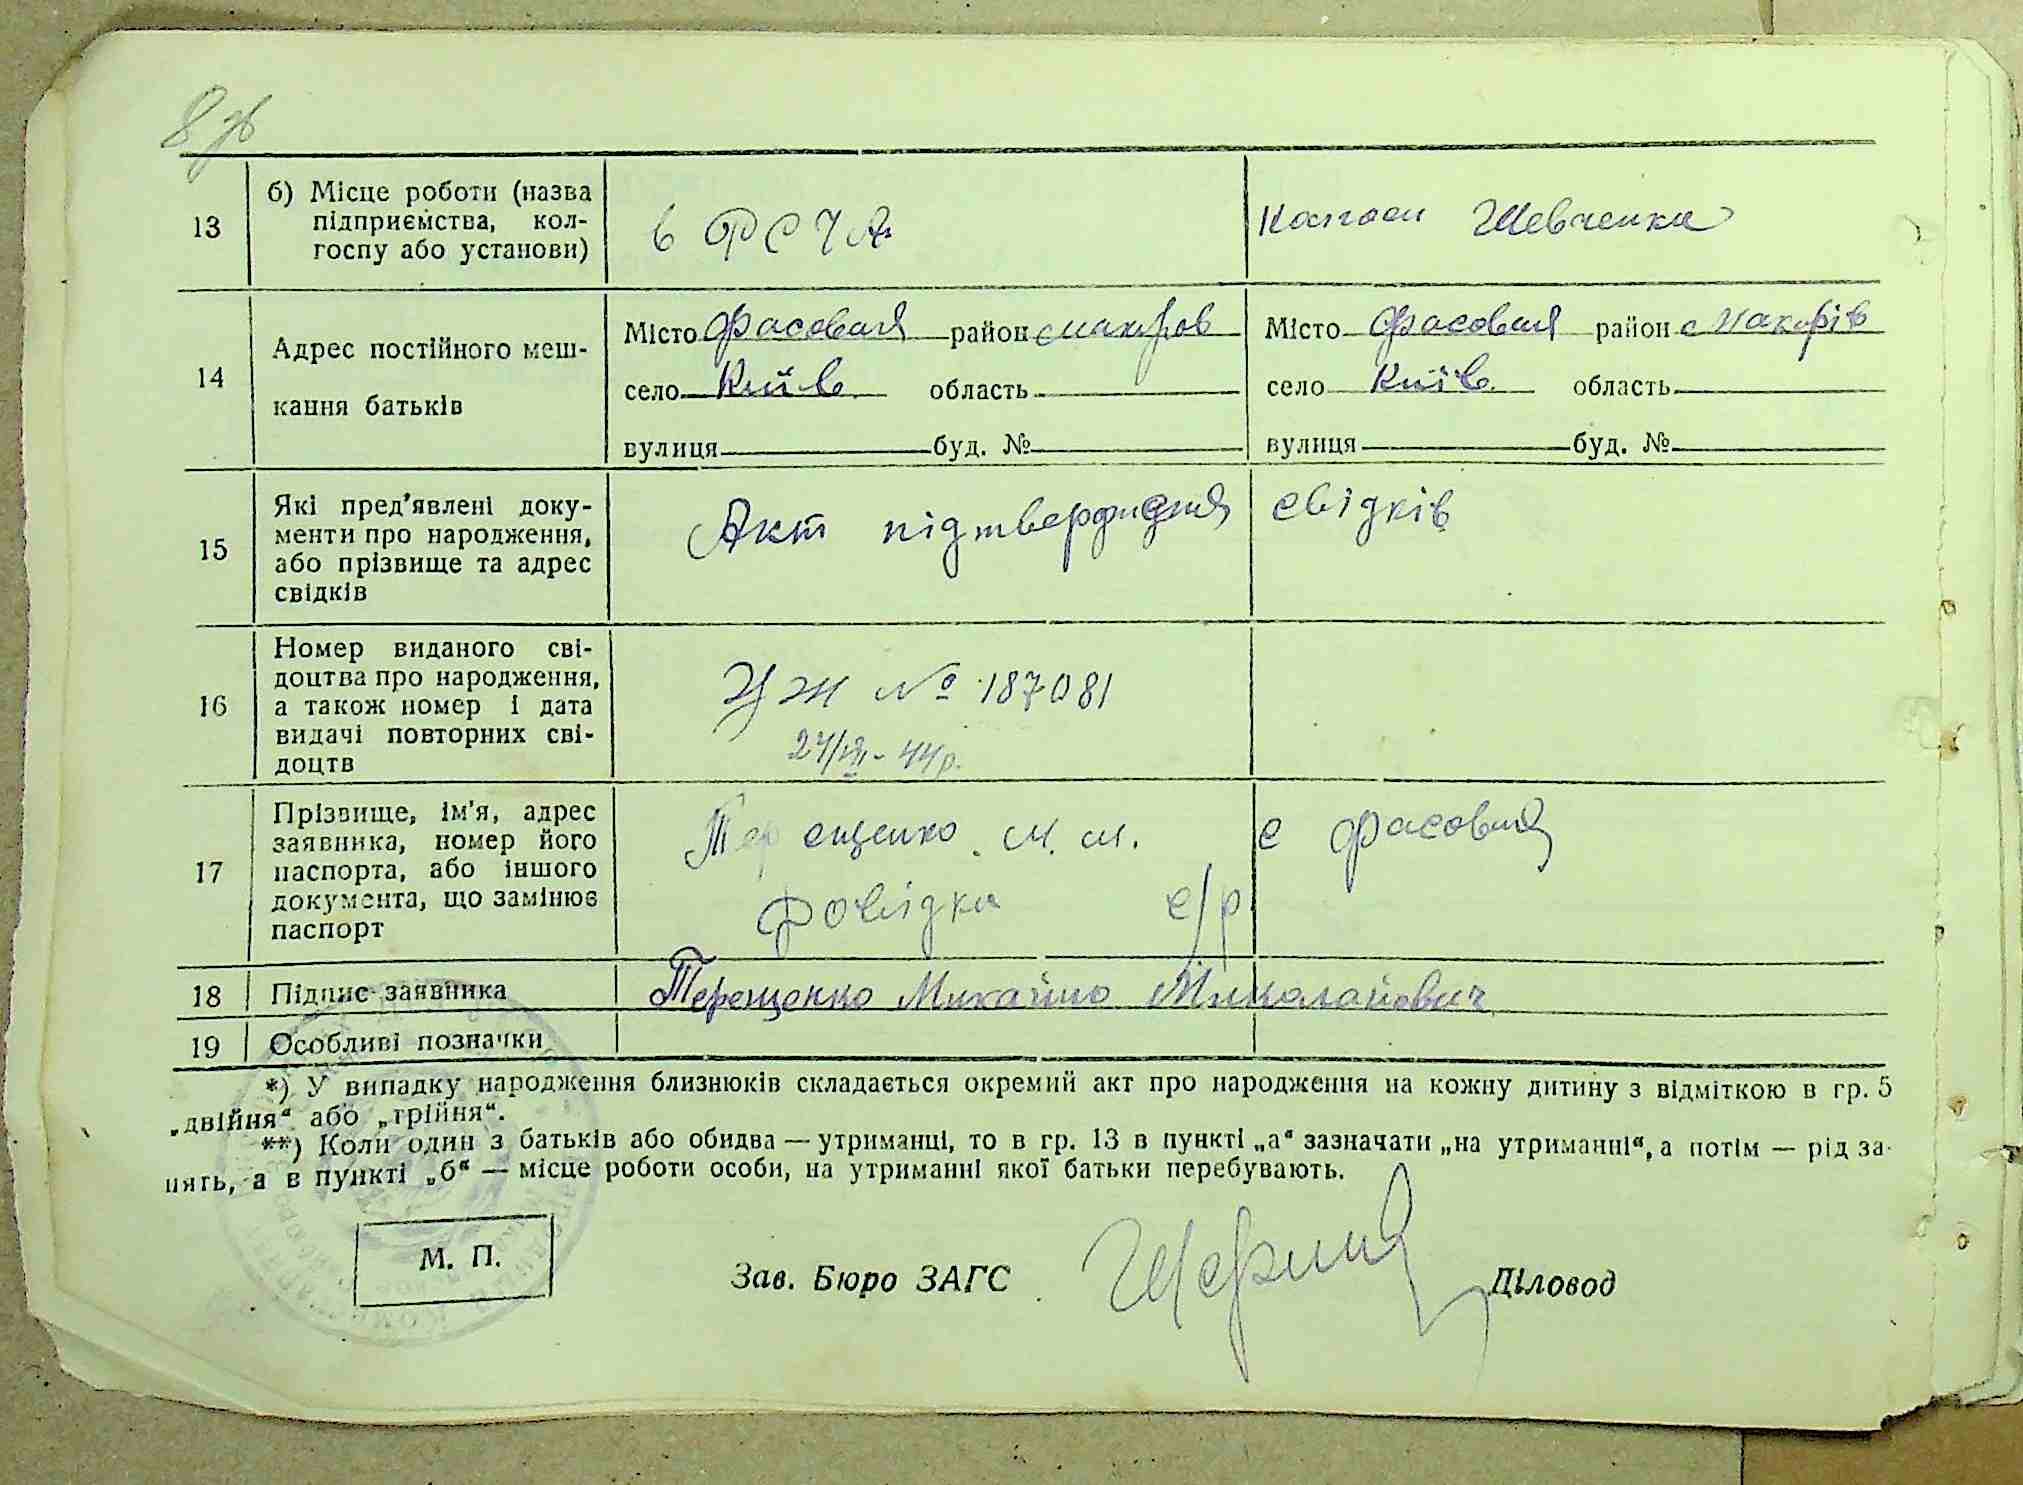 8 зв
13 б) Місце роботи (назва
підприємства, кол-
госпу або установи)
в РСЧА
Колгосп Шевченка
14 Адрес постійного меш-
кання батьків
Місто Фасовая район Макаров
село Київ область
вулиця буд. №
Місто Фасовая район Макарів
село Київ область
вулиця буд. №
15 Які пред'явлені доку-
менти про народження,
або прізвище та адрес
свідків
Акт підтвердження свідків
16 Номер виданого сві-
доцтва про народження,
а також номер і дата
видачі повторних сві-
доцтв
УЖ № 187081
24/VIII-44р.
17 Прізвище, ім'я, адрес
заявника, номер його
паспорта, або іншого
документа, що замінює
паспорт
Терещенко М. М. с Фасовая
довідка с/р
18 Підпис заявника
Терещенко Михайло Миколайович
19 Особливі позначки
*) У випадку народження близнюків складається окремий акт про народження на кожну дитину з відміткою в гр. 5
„двійня“ або „трійня“.
**) Коли один з батьків або обидва — утриманці, то в гр. 13 в пункті „а“ зазначати „на утриманні“, а потім — рід за-
нять, а в пункті „б“ — місце роботи особи, на утриманні якої батьки перебувають.
М. П.
Зав. Бюро ЗАГС
Діловод